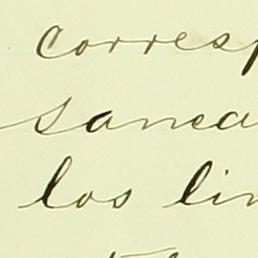 corresp
sanea
los lin